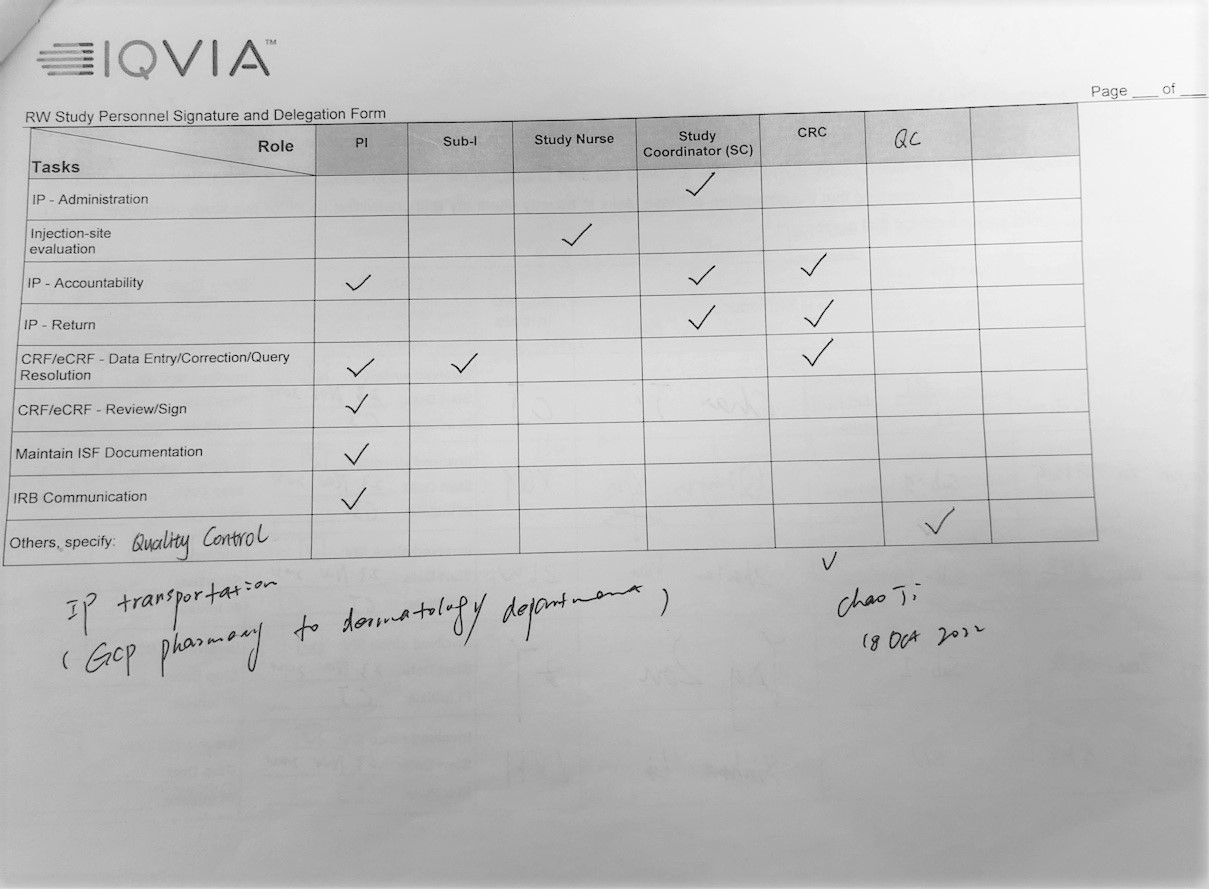 IQVIA™
Page ___ of ___
RW Study Personnel Signature and Delegation Form
Role PI Sub-I Study Nurse Study Coordinator (SC) CRC QC
Tasks
IP - Administration ✓
Injection-site
evaluation ✓
IP - Accountability ✓ ✓ ✓
IP - Return ✓ ✓
CRF/eCRF - Data Entry/Correction/Query
Resolution ✓ ✓ ✓
CRF/eCRF - Review/Sign ✓
Maintain ISF Documentation ✓
IRB Communication ✓
Others, specify: Quality Control ✓
IP transportation ✓
(GCP pharmacy to dermatology department)
Chao Ji
18 Oct 2022